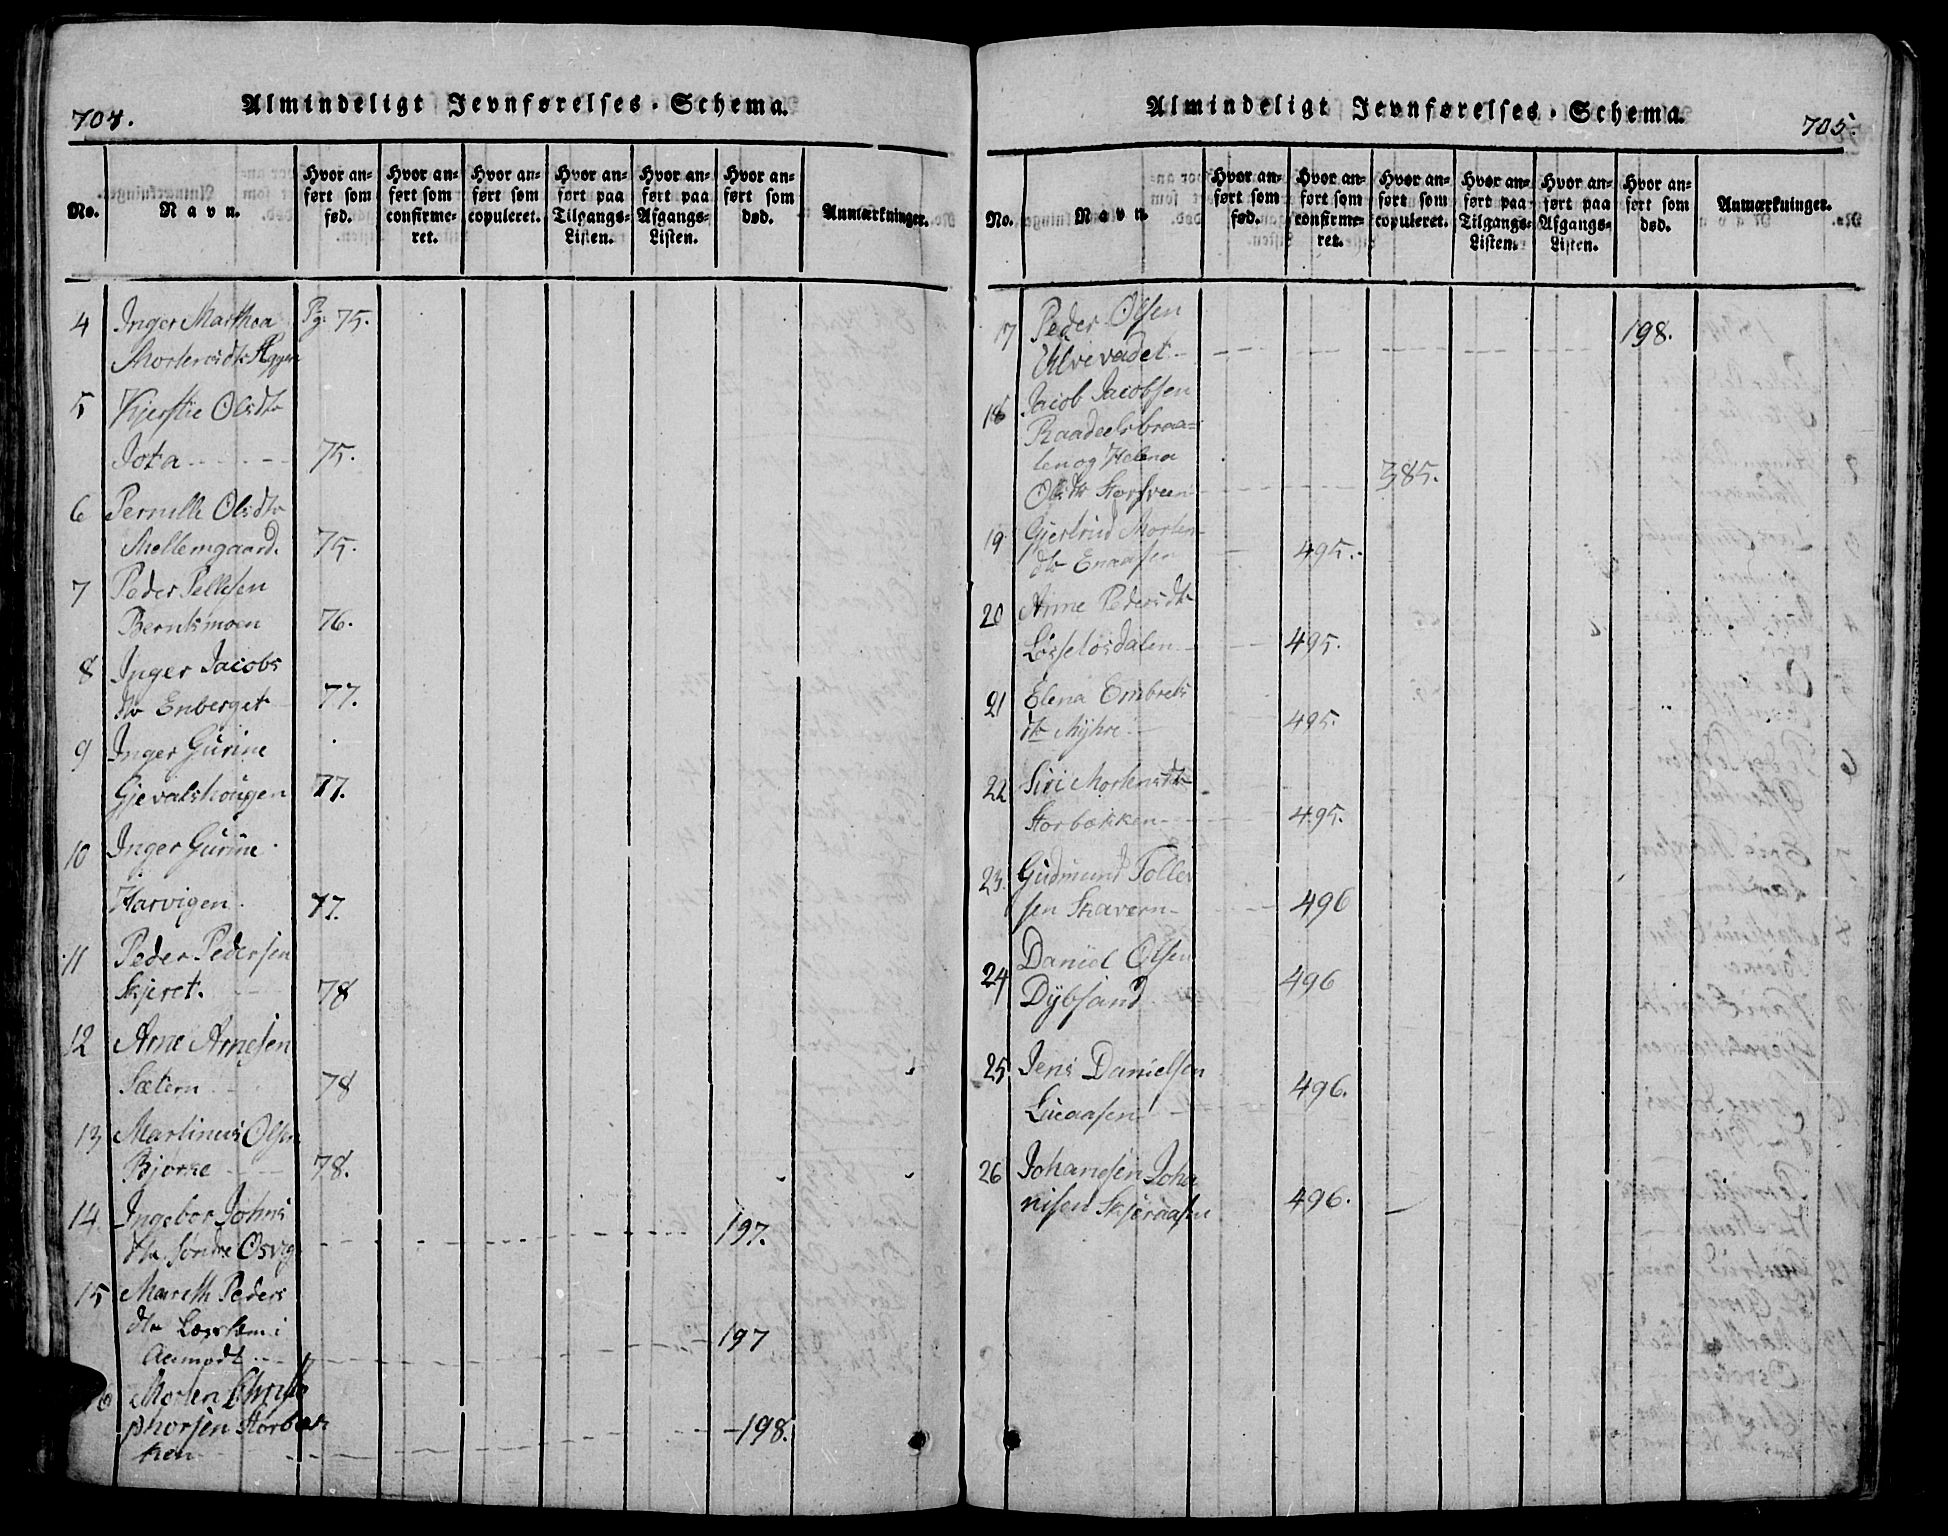 704.
Almindeligt Jevnførelses-Schema.
No.
Navn.
Hvor an-
ført som
fød.
Hvor an-
ført som
confirme-
ret.
Hvor an-
ført som
copuleret.
Hvor an-
ført paa
Tilgangs-
Listen.
Hvor an-
ført paa
Afgangs-
Listen.
Hvor an-
ført som
død.
Anmærkninger.
4 Inger Marthea Pg. 75.
Mortensdtr
5 Kjerstie Olsdtr
Jota 75.
6 Pernille Olsdtr
Mellemgaard. 75.
7 Peder Pellesen
Berntsmoen 76.
8 Inger Jacobs
dtr Enberget 77.
9 Inger Gurine
Gjevalshougen 77.
10 Inger Gurine
Harvigen. 77.
11 Peder Pedersen
Skjeret. 78
12 Arne Arnesen
Sætern 78
13 Martinus Olsen
Bjørke 78.
14 Ingebor Johns
dtr søndre Osvig 197.
15 Mareth Peders
dtr i
Aamodt 197
Morten Christo
phorsen Storbæk
ken 198.
Almindeligt Jevnførelses-Schema.
705.
No.
Navn.
Hvor an-
ført som
fød.
Hvor an-
ført som
confirme-
ret.
Hvor an-
ført som
copuleret.
Hvor an-
ført paa
Tilgangs-
Listen.
Hvor an-
ført paa
Afgangs-
Listen.
Hvor an-
ført som
død.
Anmærkninger.
17 Peder Olsen 198.
Ulvevadet
18 Jacob Jacobsen
Raadeelsbraa-
len og Helena
Olsdtr Storsveen 385.
19 Gjertrud Morten
dtr Enaasen 495.
20 Anne Pedersdtr
Løsselosdalen 495.
21 Elena Embrets
dtr Myhre 495.
22 Siri Mortensdtr
Storbækken 495.
23. Gudmund Toller
sen Skavern 496
24 Daniel Olsen
Dybsand 496
25 Jens Danielsen
Lueaasen 496.
26 Johanesen Joha
nisen Skjeraasen 496.